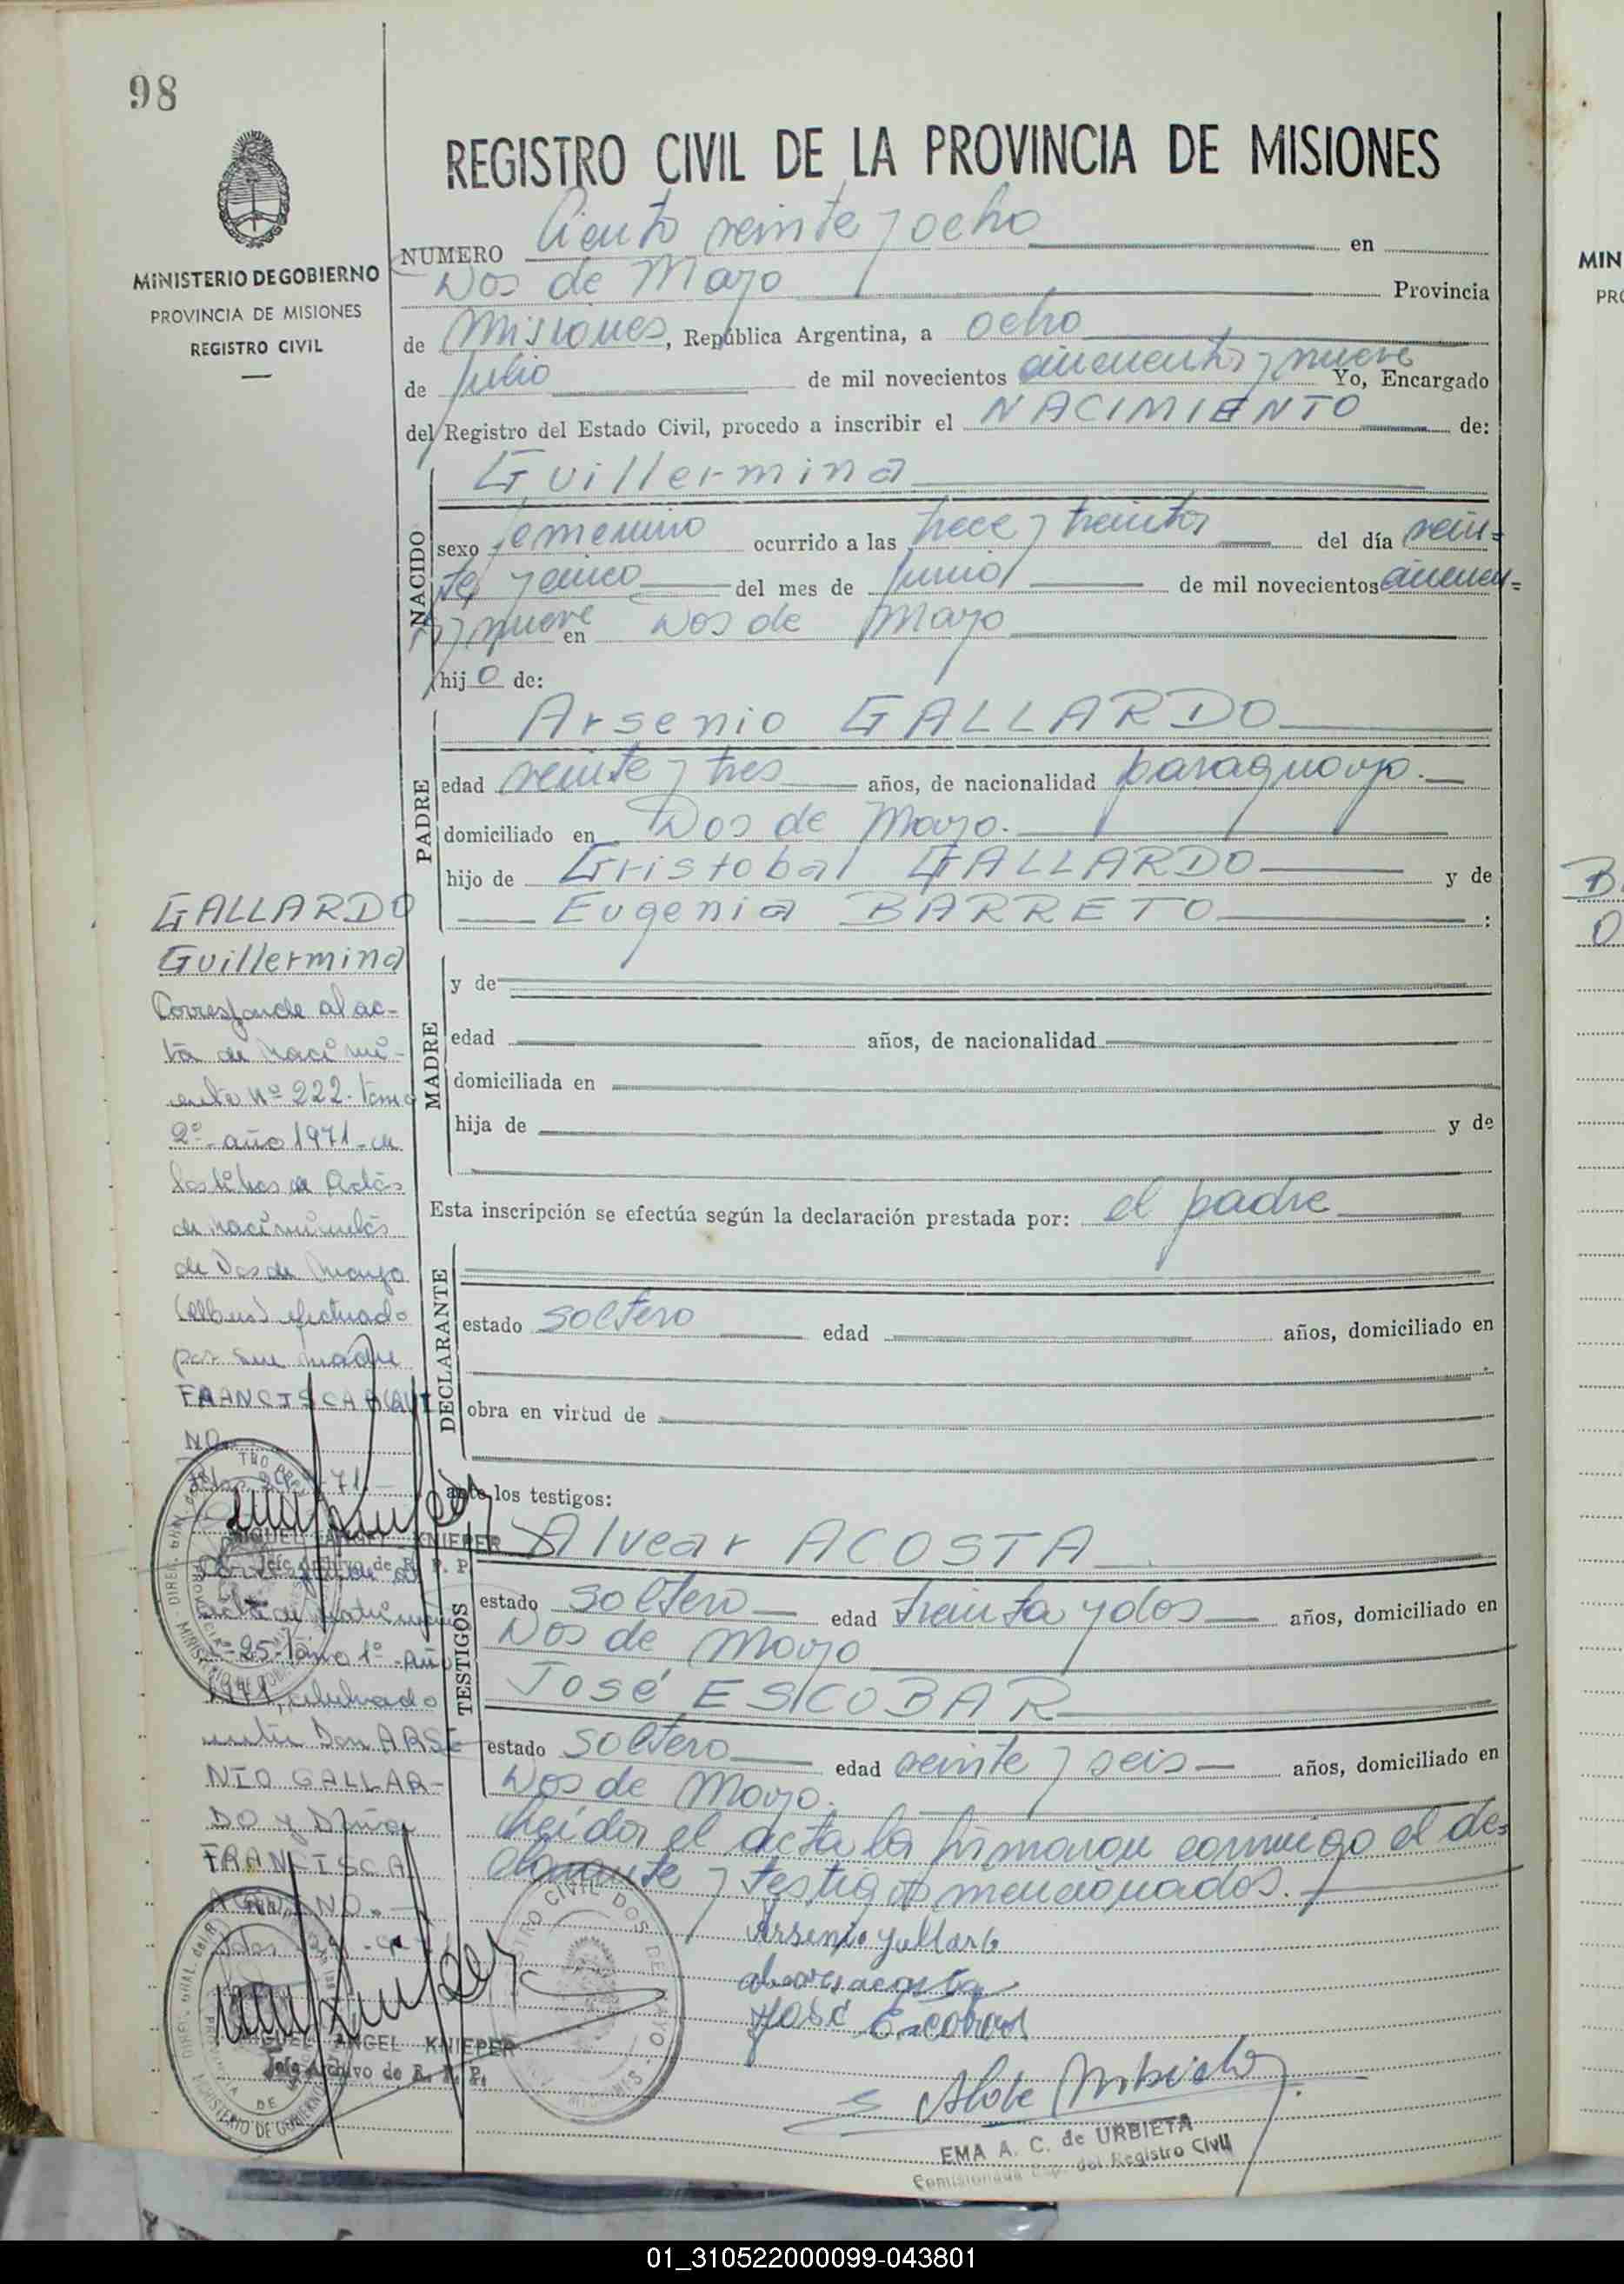 98
MINISTERIO DE GOBIERNO
PROVINCIA DE MISIONES
REGISTRO CIVIL
REGISTRO CIVIL DE LA PROVINCIA DE MISIONES
NUMERO Ciento veinte y ocho en
Dos de Mayo Provincia
de Misiones, República Argentina, a ocho
de Julio de mil novecientos cincuenta y nueve Yo, Encargado
del Registro del Estado Civil, procedo a inscribir el NACIMIENTO de:
NACIDO
Guillermina
sexo femenino ocurrido a las trece y treinta del día vein=
te y cinco del mes de Junio de mil novecientos cincuen=
ta y nueve en Dos de Mayo
hijo de:
PADRE
Arsenio GALLARDO
edad veinte y tres años, de nacionalidad paraguayo.
domiciliado en Dos de Mayo.
hijo de Cristobal GALLARDO y de
Eugenia BARRETO :
MADRE
y de
edad años, de nacionalidad
domiciliada en
hija de y de
Esta inscripción se efectúa según la declaración prestada por: el padre
DECLARANTE
estado soltero edad años, domiciliado en
obra en virtud de
ante los testigos:
TESTIGOS
Alvear ACOSTA
estado soltero edad treinta y dos años, domiciliado en
Dos de Mayo
José ESCOBAR
estado soltero edad veinte y seis años, domiciliado en
Dos de Mayo.
Leida el acta la firmaron conmigo el de=
clarante y testigos mencionados.
Arsenio Gallardo
alvear acosta
José Escobar
EMA A. C. de URBIETA
del Registro Civil
GALLARDO
Guillermina
Corresponde al ac-
ta de nacimi-
ento Nº 222. tomo
2º- año 1971- de
los libros de Actas
de nacimientos
de Dos de Mayo
efectuado
por su madre
FRANCISCA AQUI
NO.
MIGUEL ANGEL KNIEPER
Jefe Archivo de R. P. P.
Nº 25- Tomo 1º- Año
1971, celebrado
entre Don ARSE
NIO GALLAR-
DO y Doña
FRANCISCA
AQUINO.
MIGUEL ANGEL KNIEPER
Jefe Archivo de R. P. P.
MINISTERIO DE GOBIERNO
01_310522000099-043801